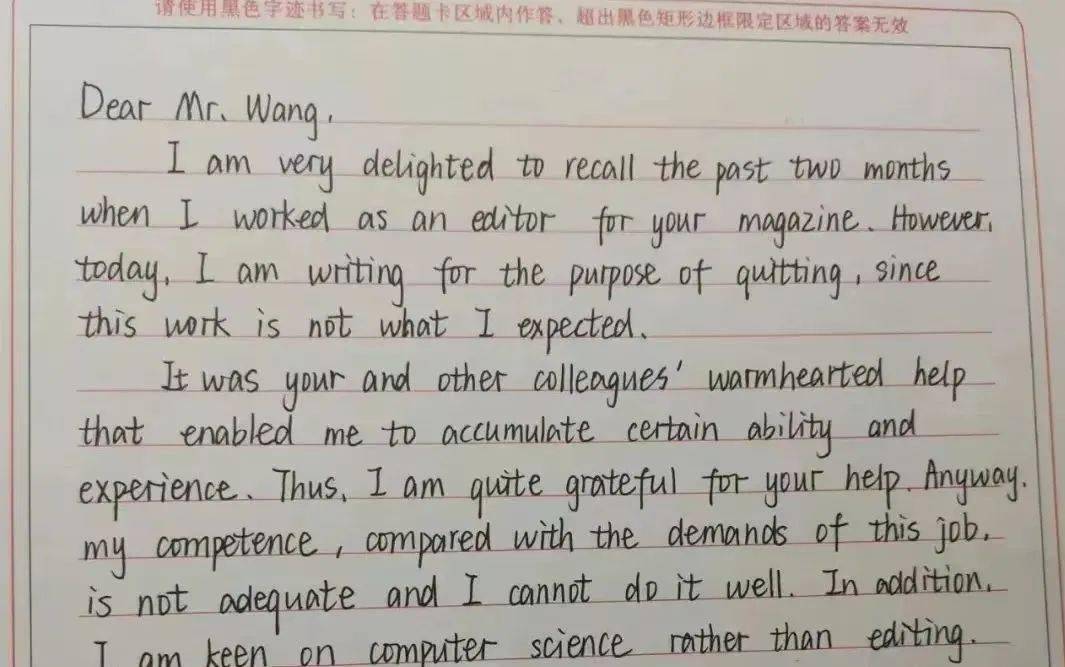 请使用黑色字迹书写：在答题卡区域内作答、超出黑色矩形边框限定区域的答案无效
Dear Mr. Wang,
I am very delighted to recall the past two months
when I worked as an editor for your magazine. However,
today, I am writing for the purpose of quitting, since
this work is not what I expected.
It was your and other colleagues' warmhearted help
that enabled me to accumulate certain ability and
experience. Thus, I am quite grateful for your help. Anyway,
my competence, compared with the demands of this job,
is not adequate and I cannot do it well. In addition,
I am keen on computer science rather than editing.